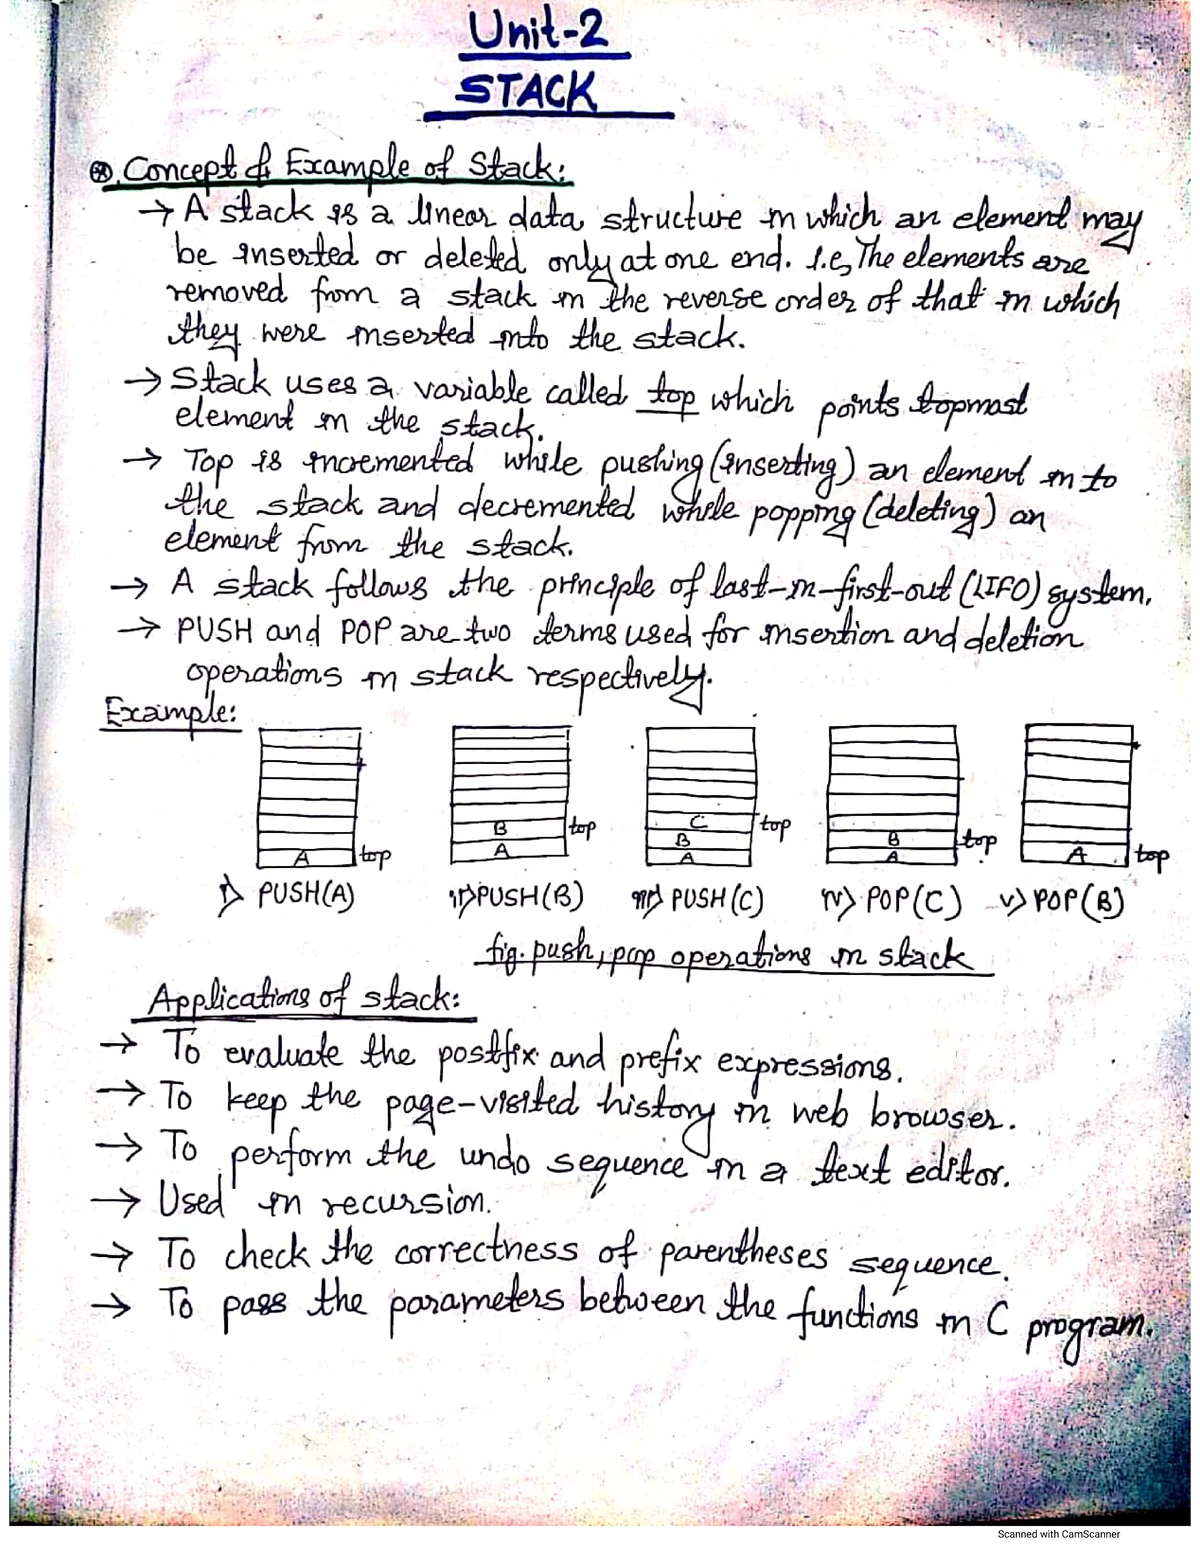 Unit-2
STACK
⊛. Concept & Example of Stack:
→ A stack is a linear data structure in which an element may
be inserted or deleted only at one end. I.e, The elements are
removed from a stack in the reverse order of that in which
they were inserted into the stack.
→ Stack uses a variable called top which points topmost
element in the stack.
→ Top is incremented while pushing (inserting) an element in to
the stack and decremented while popping (deleting) an
element from the stack.
→ A stack follows the principle of last-in-first-out (LIFO) system.
→ PUSH and POP are two terms used for insertion and deletion
operations in stack respectively.
Example:
A top
B top
A
C top
B
A
B top
A
A top
i> PUSH(A) ii> PUSH(B) iii> PUSH(C) iv> POP(C) v> POP(B)
fig. push, pop operations in stack
Applications of stack:
→ To evaluate the postfix and prefix expressions.
→ To keep the page-visited history in web browser.
→ To perform the undo sequence in a text editor.
→ Used in recursion.
→ To check the correctness of parentheses sequence.
→ To pass the parameters between the functions in C program.
Scanned with CamScanner